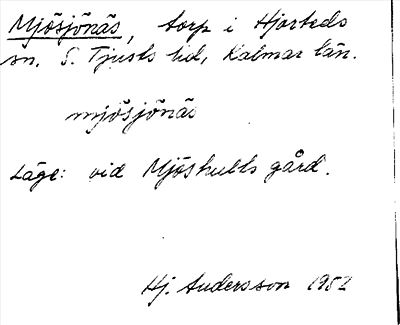 Mjösjönäs, torp i Hjorteds
sn. S. Tjusts hd, Kalmar län.
mjösjönäs
Läge: vid Mjöshults gård.
Hj. Andersson 1952